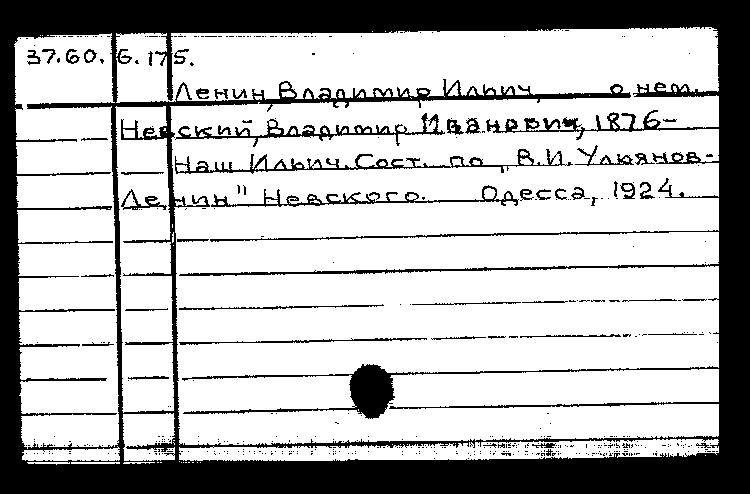 37.60.6.175.
Ленин, Владимир Ильич, о нем.
Невский, Владимир Иванович, 1876-
Наш Ильич. Сост. по „В.И. Ульянов-
Ленин" Невского. Одесса, 1924.